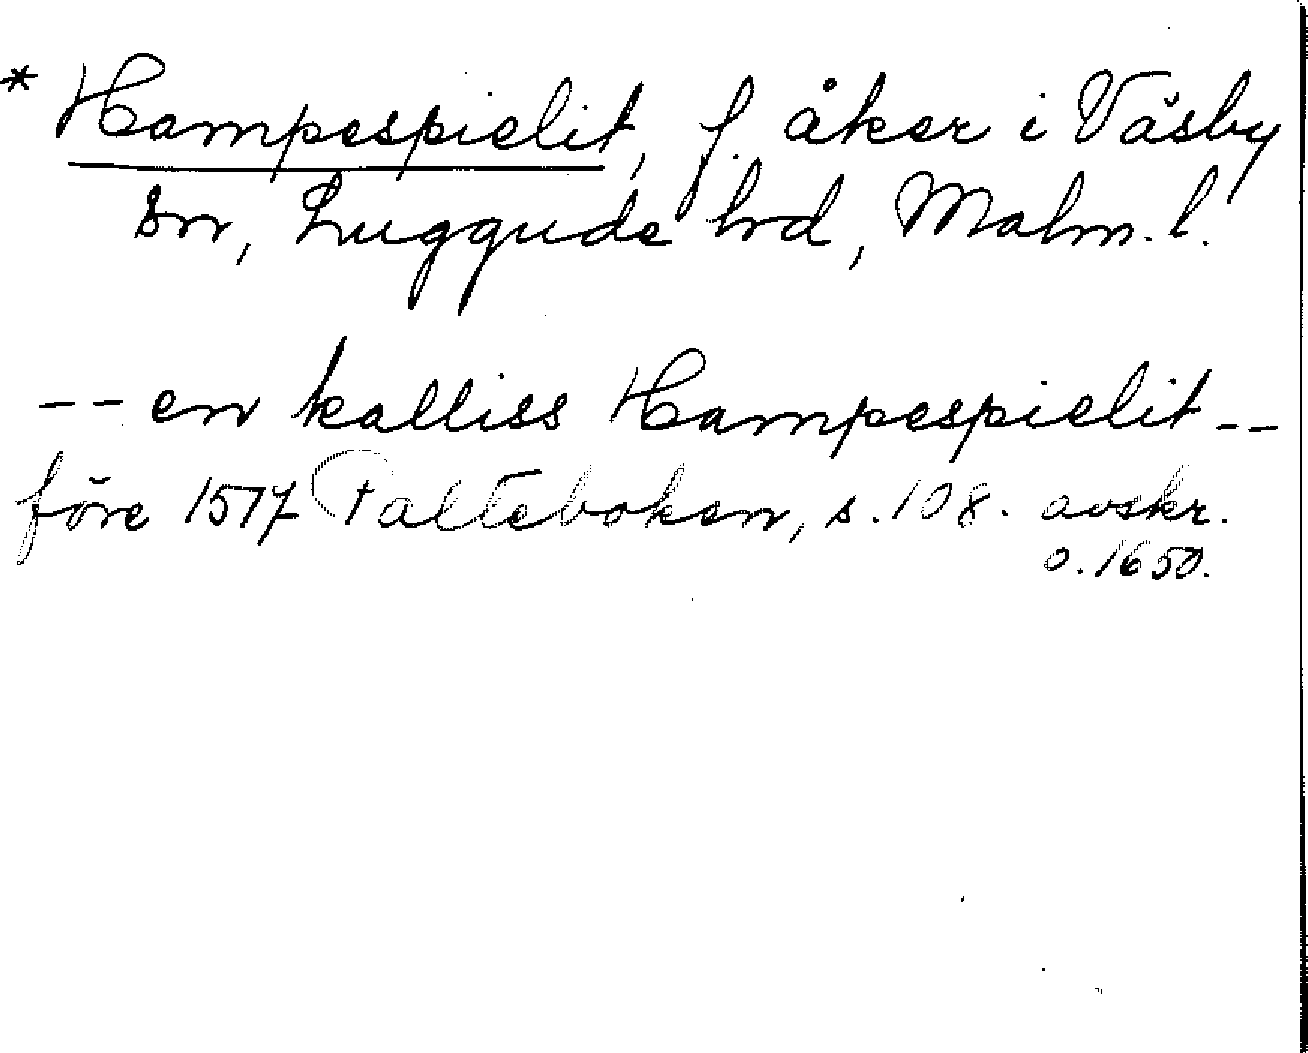 * Hampespielit, f. åker i Väsby
sn, Luggude hd, Malm. l.
-- en kalliss Hampespielit --
före 1517 Palteboken, s. 108. avskr.
o. 1650.